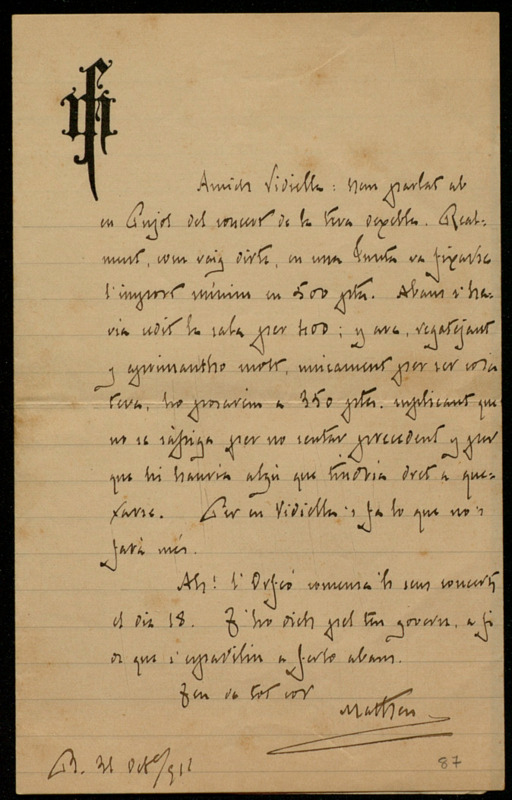 Amich Vidiella: hem parlat ab
en Pujol del concert de la teva dexebla. Real-
ment, com vaig dirte, en una Junta va fixarse
l'import mínim en 500 ptes. Abans s'ha-
via cedit la sala per 400; y ara, regatejant
y aprimantho molt, unicament per ser cosa
teva, ho posarém a 350 ptes. suplicant que
no se sápiga per no sentar precedent y per
que hi hauria algú que tindria dret a que-
xarse. Per en Vidiella 's fa lo que no 's
fará més.
Ah! l'Orfeó comensa 'ls seus concerts
el dia 18. T'ho dich pel teu govern, a fi
de que s'espavilin a ferlo abans.
Teu de tot cor
Matheu
B. 31 Octe/912
87